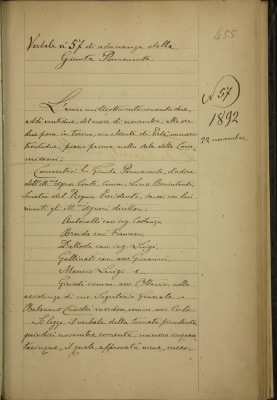 455
Verbale n° 57 di adunanza della
Giunta Permanente.
N 57
1892
22 novembre
L'anno milleottocentonovantadue,
addì ventidue, del mese di novembre, alle ore
due pom. in Torino, via Monte di Pietà, numero
trentadue, piano primo, nella sala delle Com-
missioni;
Convocatasi la Giunta Permanente, d'ordine
dell'Ill. signor Conte Comm.
Senatore del Regno, Presidente, sonosi con lui
riuniti gli Ill. Signori direttori,
Antonelli cav. ing. Costanzo
Braida cav. Francesco
Daltosta cav. ing. Luigi
Gallinati cav. avv. Giovanni
Mancio Luigi e
comm. avv. Ottavio, colla
assistenza di me Segretario Generale
Balsamo Crivelli marchese, comm. avv. Carlo.
Si legge il verbale della tornata precedente
quindici novembre corrente, numero cinquan-
tacinque, il quale, approvato viene, meco,